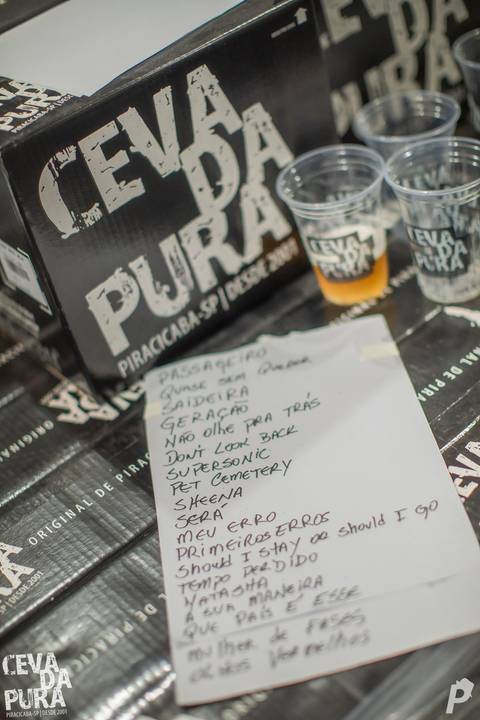 CEVA
DA
PURA
PIRACICABA-SP | DESDE 2001
CEVA
DA
PURA
CEVA
DA
PURA
PASSAGEIRO
QUASE SEM QUERER
SAIDEIRA
GERAÇÃO
NÃO OLHE PRA TRÁS
DON'T LOOK BACK
SUPERSONIC
PET CEMETERY
SHEENA
SERÁ
MEU ERRO
PRIMEIROS ERROS
SHOULD I STAY OR SHOULD I GO
TEMPO PERDIDO
NATASHA
A SUA MANEIRA
QUE PAÍS É ESSE
MULHER DE FASES
OLHOS VERMELHOS
ORIGINAL DE PIRACI
ORIGINAL
NAL DE PIRA
CEVA
CEVA
DA
PURA
PIRACICABA-SP | DESDE 2001